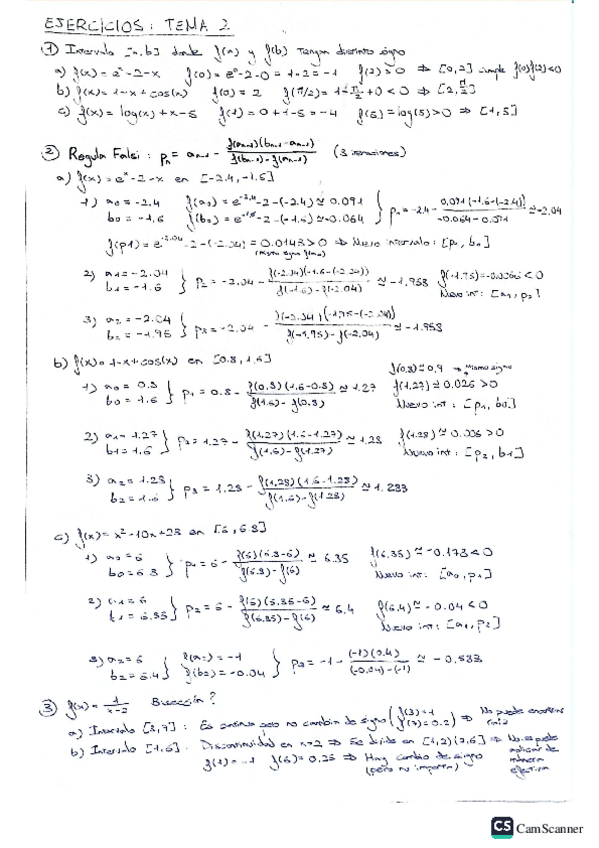 EJERCICIOS: TEMA 2
① Intervalo [a,b] donde f(a) y f(b) tengan distinto signo
a) f(x) = eˣ-2-x f(0) = e⁰-2-0 = 1-2 = -1 f(2) > 0 ⇒ [0,2] cumple f(0)f(2)<0
b) f(x) = 1-x+cos(x) f(0) = 2 f(π/2) = 1-π/2+0 < 0 ⇒ [2, π/2]
c) f(x) = log(x)+x-5 f(1) = 0+1-5 = -4 f(5) = log(5) > 0 ⇒ [1,5]
② Regula Falsi: pₙ = aₙ₋₁ - f(aₙ₋₁)(bₙ₋₁-aₙ₋₁) / f(bₙ₋₁)-f(aₙ₋₁) (3 iteraciones)
a) f(x) = eˣ-2-x en [-2.4, -1.6]
1) a₀ = -2.4 f(a₀) = e^-2.4-2-(-2.4) ≈ 0.091
b₀ = -1.6 f(b₀) = e^-1.6-2-(-1.6) ≈ -0.064 } = -2.4 - 0.091(-1.6-(-2.4)) / -0.064-0.091 ≈ -2.04
f(p1) = e^-2.04-2-(-2.04) = 0.0143 > 0 ⇒ Nuevo intervalo: [p₁, b₀]
2) a₁ = -2.04
b₁ = -1.6 } p₂ = -2.04 - f(-2.04)(-1.6-(-2.04)) / f(-1.6)-f(-2.04) ≈ -1.958 < 0
Nuevo int: [a₁, p₂]
3) a₂ = -2.04
b₂ = -1.95 } p₃ = -2.04 - / f(-1.95)-f(-2.04) ≈ -1.958
b) f(x) = 1-x+cos(x) en [0.8, 1.6]
f(0.8) ≈ 0.9 → Mismo signo
1) a₀ = 0.8
b₀ = 1.6 } p₁ = 0.8 - f(0.8)(1.6-0.8) / f(1.6)-f(0.8) ≈ 1.27 f(1.27) ≈ 0.026 > 0
Nuevo int: [p₁, b₀]
2) a₁ = 1.27
b₁ = 1.6 } p₂ = 1.27 - f(1.27)(1.6-1.27) / f(1.6)-f(1.27) ≈ 1.28 f(1.28) ≈ 0.006 > 0
Nuevo int: [p₂, b₁]
3) a₂ = 1.28
b₂ = 1.6 } p₃ = 1.28 - f(1.28)(1.6-1.28) / f(1.6)-f(1.28) ≈ 1.283
c) f(x) = x²-10x+23 en [6, 6.8]
1) a₀ = 6
b₀ = 6.8 } p₁ = 6 - f(6)(6.8-6) / f(6.8)-f(6) ≈ 6.35 f(6.35) ≈ -0.178 < 0
Nuevo int: [a₀, p₁]
2) a₁ = 6
b₁ = 6.35 } p₂ = 6 - f(6)(6.35-6) / f(6.35)-f(6) ≈ 6.4 f(6.4) ≈ -0.04 < 0
Nuevo int: [a₁, p₂]
3) a₂ = 6 f(a₂) = -1
b₂ = 6.4 f(b₂) = -0.04 } p₃ = -1 - (-1)(0.4) / (-0.04)-(-1) ≈ -0.583
③ f(x) = 1/x-2 Bisección?
a) Intervalo [3,7]: Es continua pero no cambia de signo (f(3)=1 f(7)=0.2) ⇒ No puede encontrar raíz
b) Intervalo [1,6]: Discontinuidad en x=2 ⇒ Se divide en [1,2)(2,6] ⇒ No se puede aplicar de manera efectiva
f(1) = -1 f(6) = 0.25 ⇒ Hay cambio de signo (pero no importa)
CS CamScanner